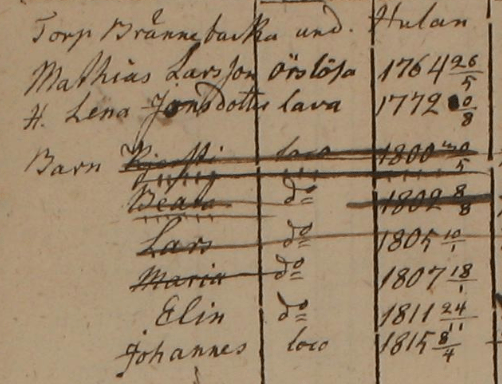 Torp Brännebacka und. Hulan
Mathias Larsson Örslösa 1764 26/5
H. Lena Jonsdotter Lava 1772 0/8
Barn Kjersti loco 1800 30/5
Beata do 1802 8/8
Lars do 1805 10/1
Maria do 1807 18/1
Elin do 1811 24/11
Johannes loco 1815 8/4